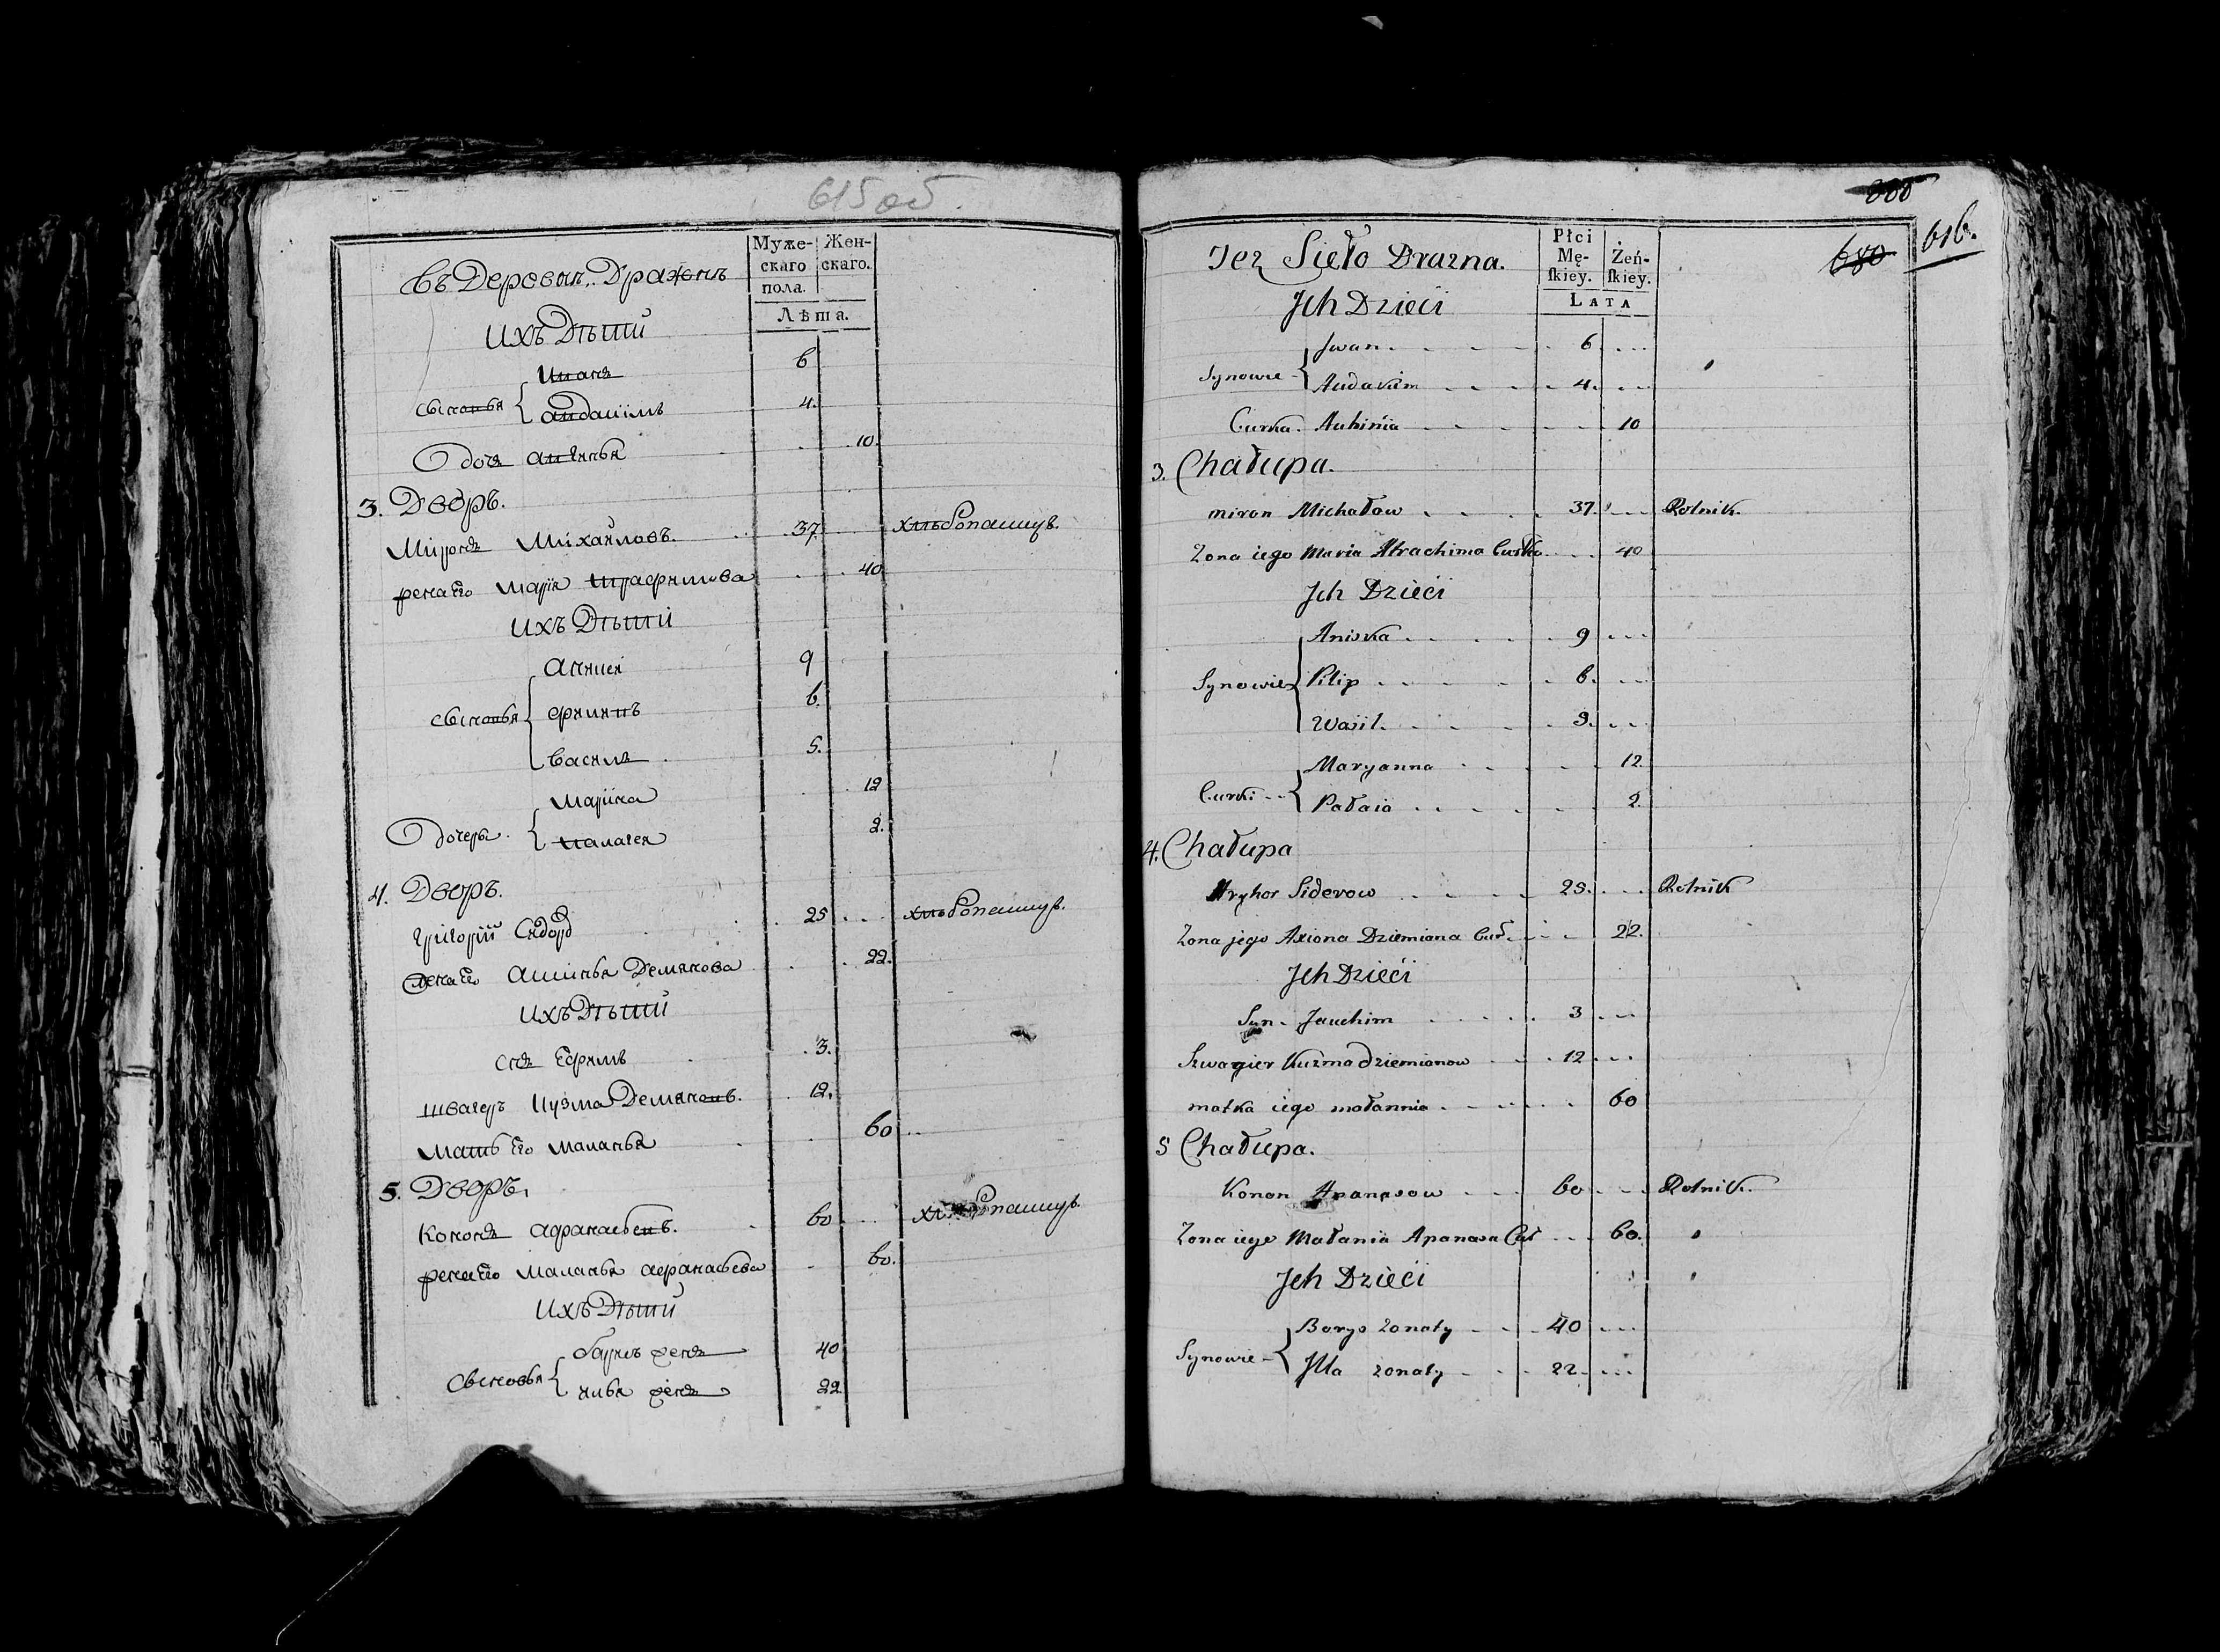 615 об.
Въ Деревни Дражнѣ
Муже-
скаго
пола.
Жен-
скаго.
Лѣта.
ИХЪ Дѣти
Иванъ 6
Сыновья { Авдакимъ 4.
Дочь Авгинья 10.
3. Дворъ.
Миронъ Михайловъ. 37. хлѣбопашцъ.
жена его Марія 40
ИХЪ Дѣти
Анися 9
Сыновья { Филипъ 6.
Василь 5.
Марина 12
Дочеры { Палагея 2.
4. Дворъ.
Григорій Сидоръ 25 хлѣбопашцъ.
жена его Аксинья Демянова 22.
ИХЪ Дѣти
снъ Ефимъ 3.
швагеръ Кузма Демяновъ. 12.
мать его Маланья 60
5. Дворъ.
Кононъ Афанасьевъ. 60 хлѣбопашцъ.
жена его Маланья Афанасьева 60.
ИХЪ Дѣти
Борисъ женъ 40
Сыновья { Илья женъ 22
888
616.
680
Tez Sieło Drazna.
Płci
Mę-
ſkiey.
Żeń-
ſkiey.
LATA
Jch Dzieći
Jwan 6
Synowie { Audakim 4.
Curka Auhinia 10
3. Chałupa.
miron Michałow 37. Rolnik.
Zona iego Maria Atrachima Curka 40
Jch Dzieći
Aniska 9
Synowie { Pilip 6.
Wasil. 9.
Maryanna 12
Curki { Pałaia 2.
4. Chałupa
Hryhor Siderow 25. Rolnik
Zona jego Axiona Dziemiana Cur. 22.
Jch Dzieći
Syn Jauchim 3
Szwagier Kuźma dziemianow 12
matka iego małannia 60
5 Chałupa.
Konon Apanasow 60 Rolnik.
Zona iego Małania Apanasa Cur 60.
Jch Dzieći
Borys zonaty 40
Synowie { Jlla zonaty 22